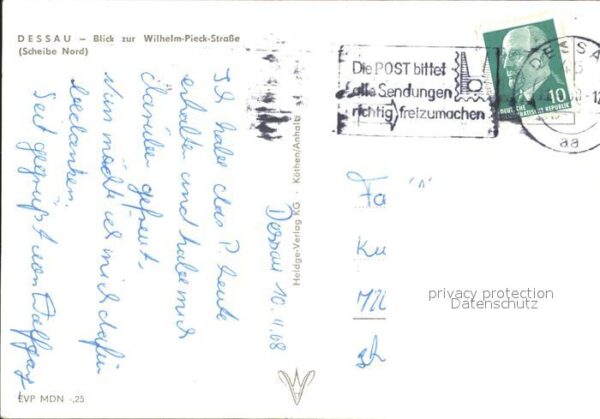 DESSAU – Blick zur Wilhelm-Pieck-Straße
(Scheibe Nord)
Die POST bittet
alle Sendungen
richtig freizumachen
DESSAU
10
DEUTSCHE
DEMOKRATISCHE REPUBLIK
aa
Dessau 10.11.68
Ich habe das P. heute
erhalten und habe mich
darüber gefreut.
Nun möchte ich mich dafür
bedanken.
Seit gegrüßt von Wolfgang
Holage-Verlag KG · Köthen/Anhalt
Fa "A"
Ku
privacy protection
Datenschutz
EVP MDN -,25